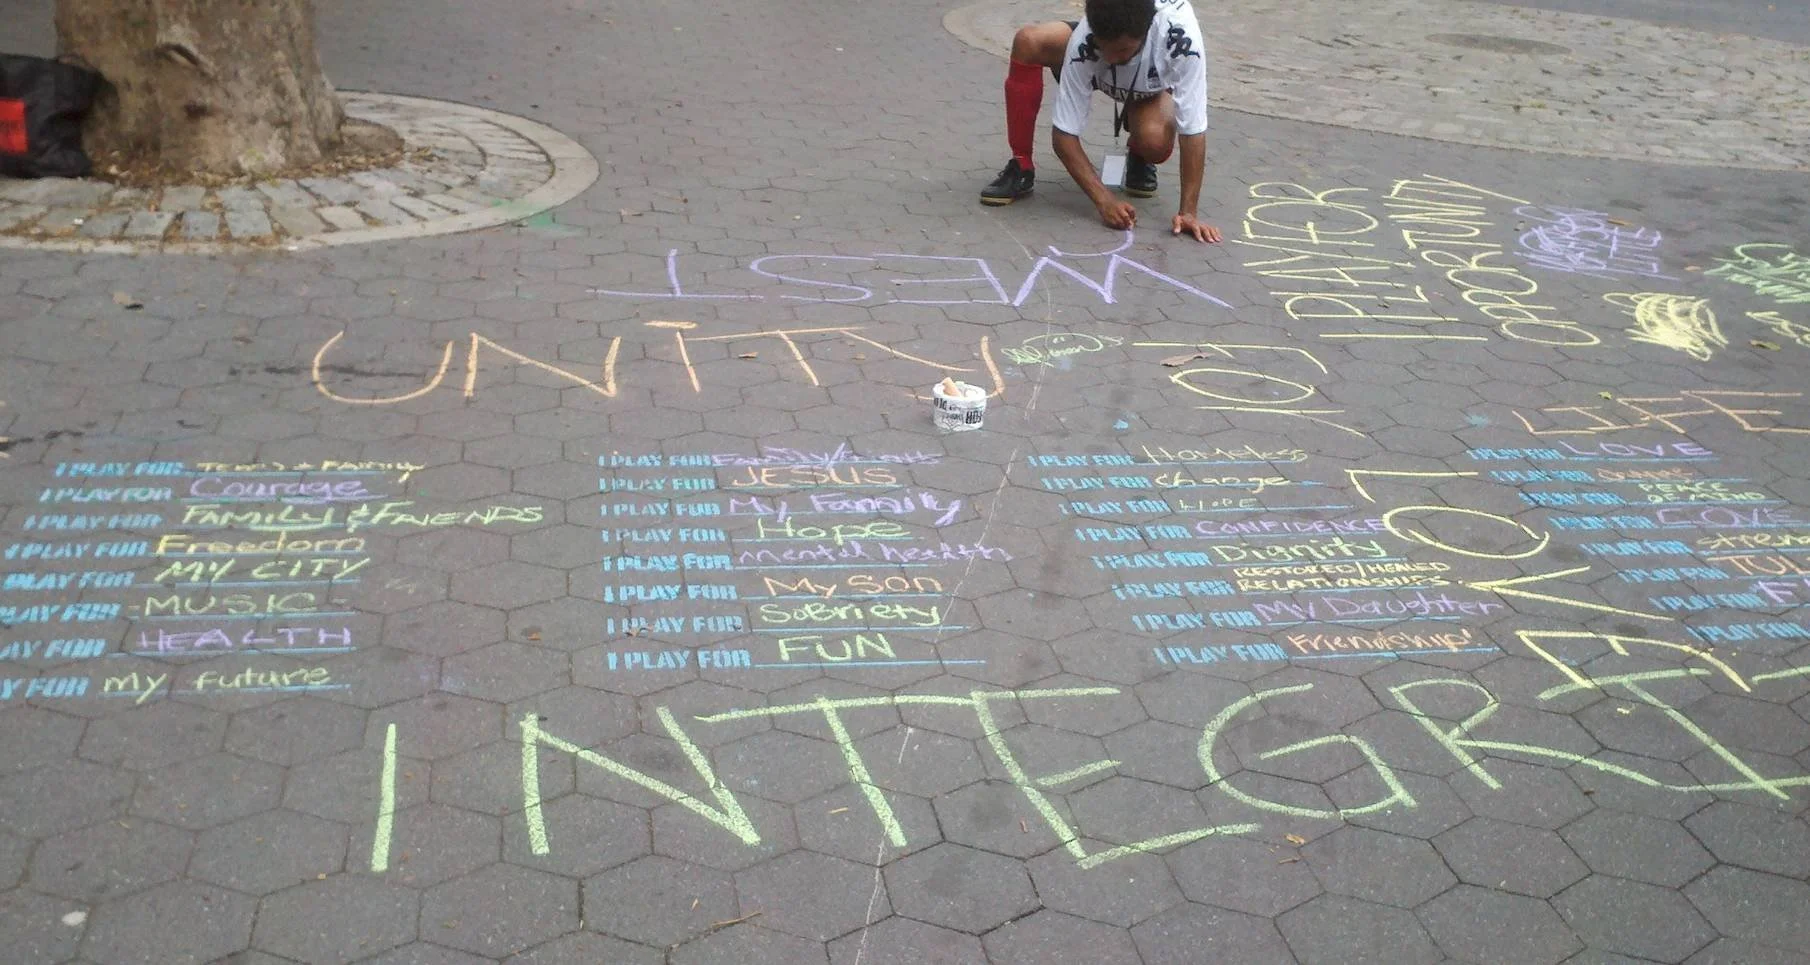 WEST
I PLAY FOR
OPORTUNITY
UNITY
LOVE
LIFE
I PLAY FOR Team + Family
I PLAY FOR Courage
I PLAY FOR FAMILY & FRIENDS
I PLAY FOR Freedom
I PLAY FOR MY CITY
PLAY FOR MUSIC
PLAY FOR HEALTH
Y FOR My future
I PLAY FOR Family
I PLAY FOR JESUS
I PLAY FOR My Family
I PLAY FOR Hope
I PLAY FOR mental health
I PLAY FOR My Son
I PLAY FOR SoBriety
I PLAY FOR FUN
I PLAY FOR Homeless
I PLAY FOR change
I PLAY FOR HOPE
I PLAY FOR CONFIDENCE
I PLAY FOR Dignity
I PLAY FOR RESTORED/HEALED
RELATIONSHIPS
I PLAY FOR My Daughter
I PLAY FOR Friendship!
I PLAY FOR LOVE
I PLAY FOR
I PLAY FOR PEACE
OF MIND
I PLAY FOR LOVE
I PLAY FOR
I PLAY FOR
I PLAY FOR
I PLAY FOR
INTEGRI